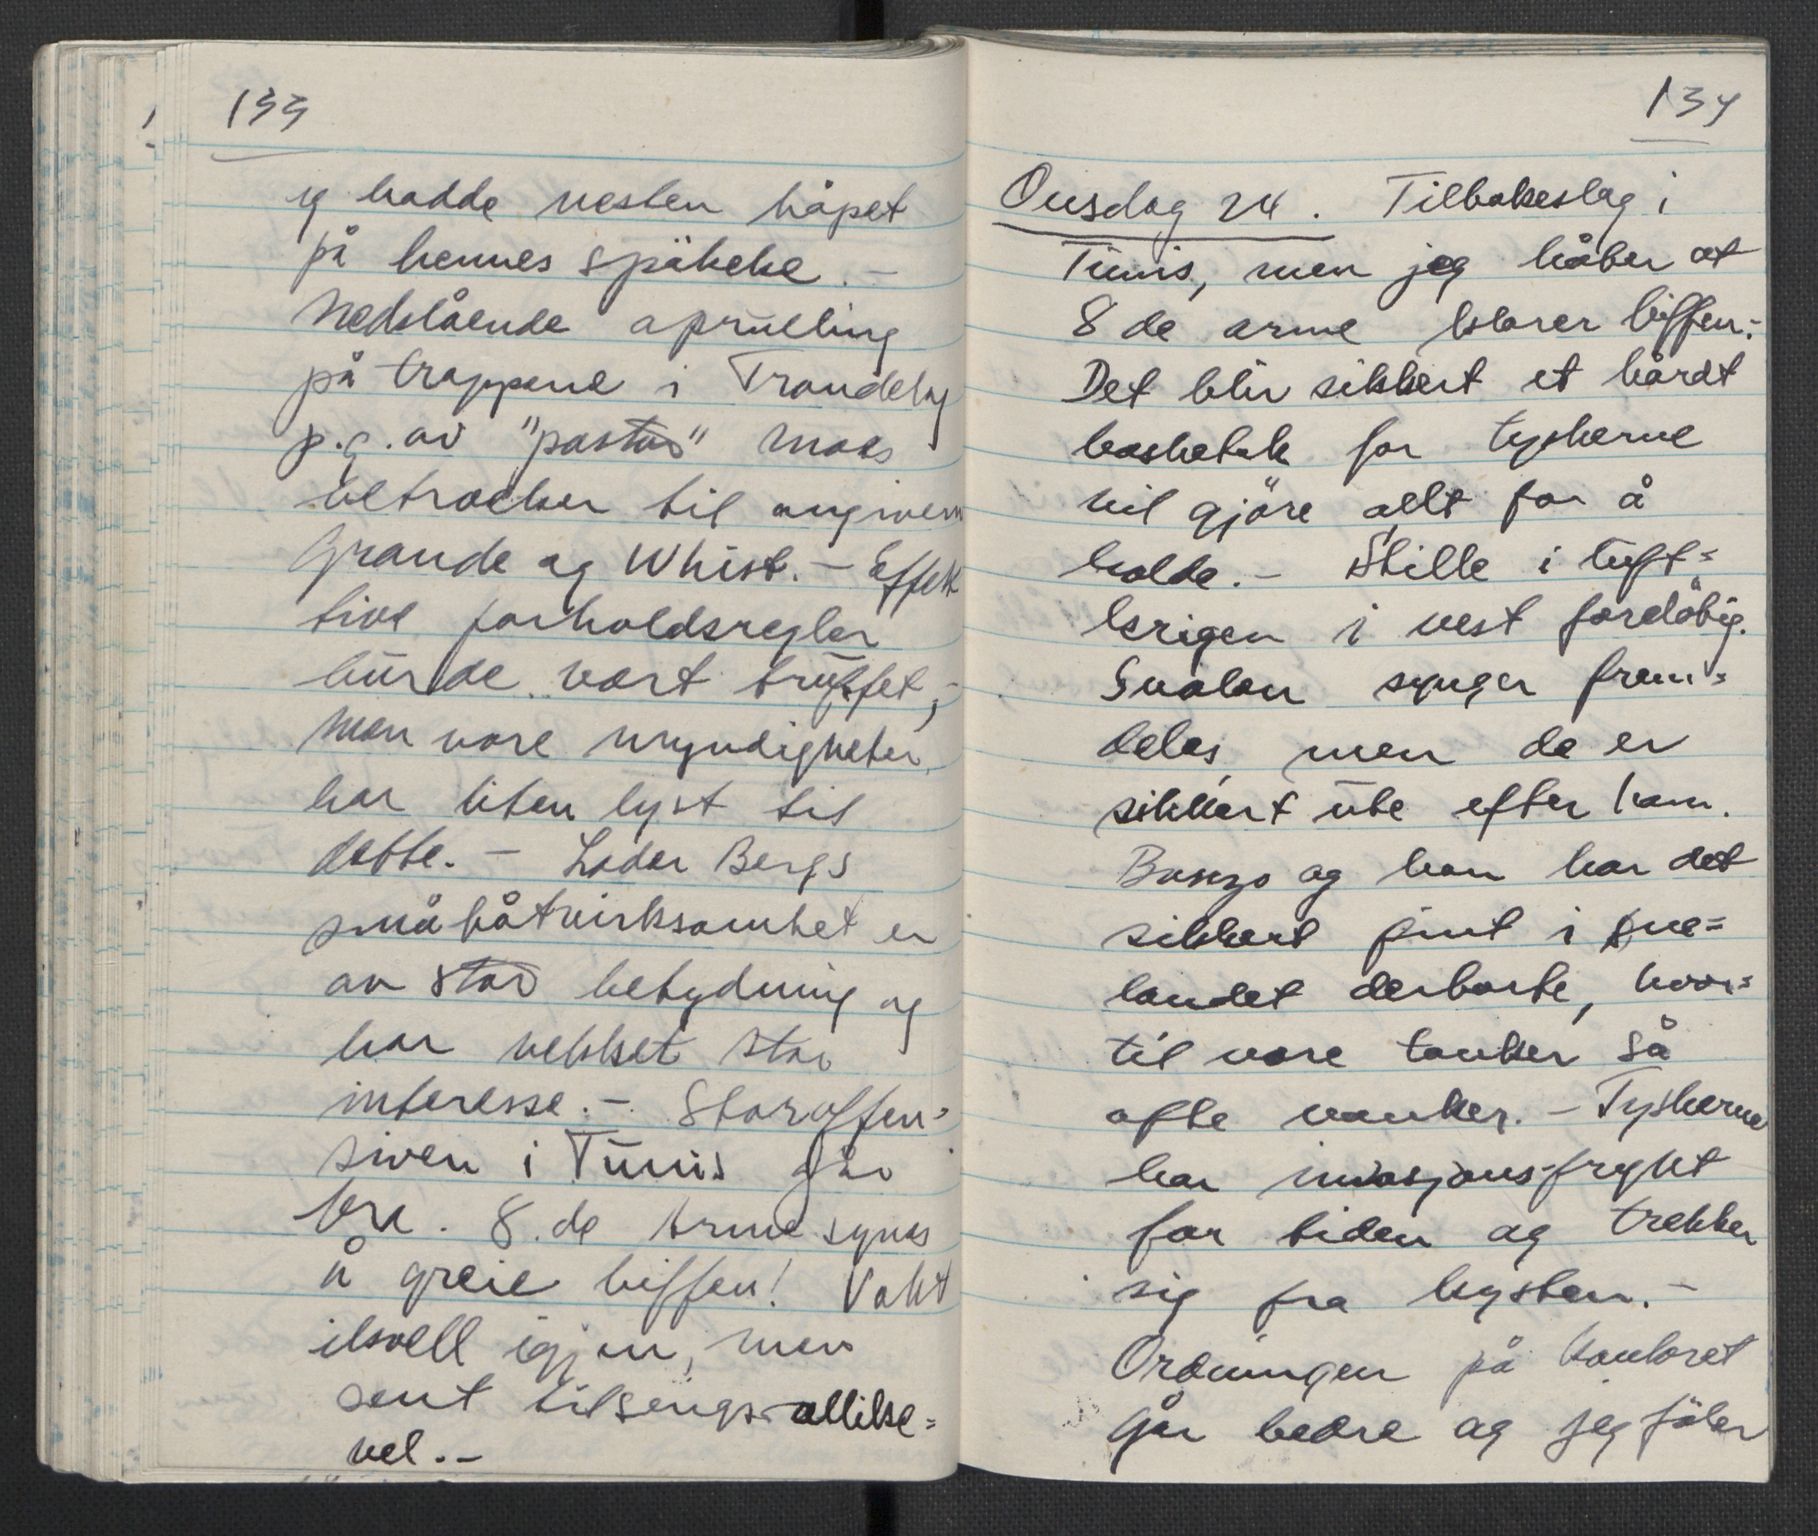 133
jeg hadde nesten håpet
på hennes spåkeke. -
Nedslående oprulling
på trappene i Trondelag
p.g.av "pastor" Moes
betroelser til angiveren
Grande og Whist. - Effek
tive forholdsregler
burde vært truffet, -
men våre myndigheter
har liten lyst til
dette. - Leder Bergs
småbåtvirksomhet er
av stor betydning og
har vekket stor
interesse. - Storoffen=
siven i Tunis går
bra. 8.de arme synes
å greie biffen! Vakt
ikveld igjen, men
sent tilsengs allike=
vel. -
134
Onsdag 24. Tilbakeslag i
Tunis, men jeg håber at
8 de arme klarer biffen. -
Det blir sikkert et hårdt
basketak for tyskerne
vil gjöre allt for å
holde. - Stille i luft=
krigen i vest foreløbig.
Svalen synger frem=
deles, men de er
sikkert ute efter ham.
og han har det
sikkert fint i sne=
landet derborte, hvor=
til våre tanker så
ofte vanker. - Tyskerne
har invasjonsfrykt
for tiden og trekker
sig fra kysten. -
Ordningen på kontoret
går bedre og jeg föler